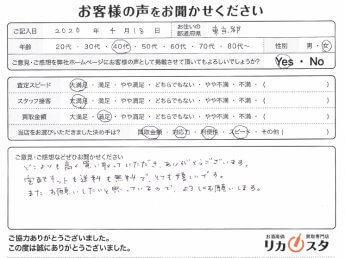 お客様の声をお聞かせください
ご記入日 2020 年 4月 18 日 お住いの都道府県 東京都
年齢 20代・30代・40代・50代・60代・70代・80代〜 性別 男・女
ご意見・ご感想を弊社ホームページにお客様の声として掲載させて頂いてもよろしいでしょうか? Yes・No
査定スピード 大満足・満足・やや満足・どちらでもない・やや不満・不満・( )
スタッフ接客 大満足・満足・やや満足・どちらでもない・やや不満・不満・( )
買取金額 大満足・満足・やや満足・どちらでもない・やや不満・不満・( )
当店をお選びいただきました決め手は? 買取金額・対応力・利便性・スピード・その他( )
ご意見・ご感想などぜひお聞かせください
どこよりも高く買い取っていただき、ありがとうございます。
宅配キットも送料も無料で、とても嬉しいです。
またお願いしたいと思っているので、よろしくお願いします。
ご協力ありがとうございました。
この度は誠にありがとうございました。
お酒高価 買取専門店
リカスタ